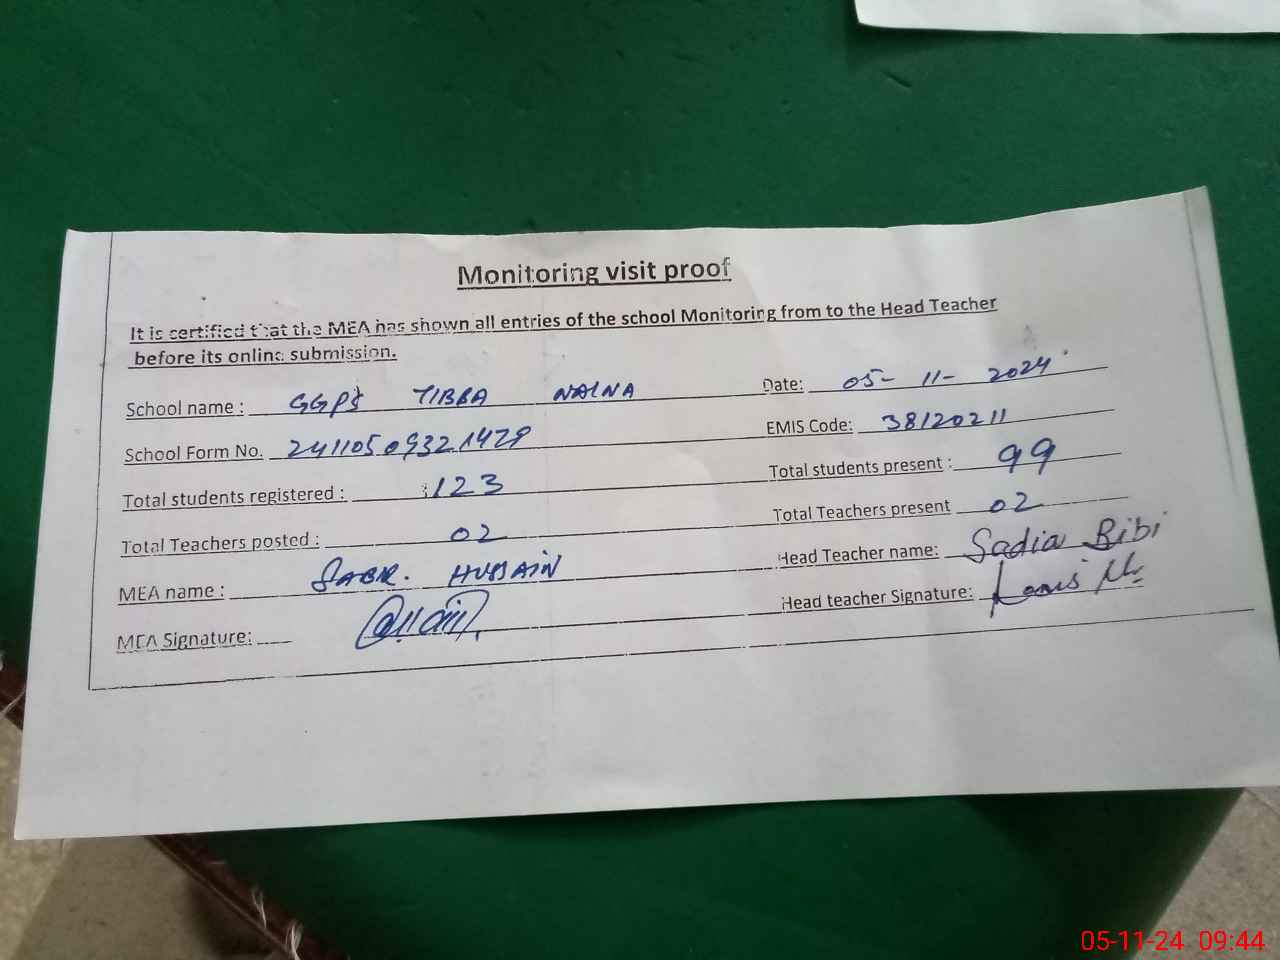 Monitoring visit proof
It is certified that the MEA has shown all entries of the school Monitoring from to the Head Teacher
before its online submission.
School name : GGPS TIBBA NALNA Date: 05-11-2024
School Form No. 24110509321479 EMIS Code: 38120211
Total students registered : 123 Total students present : 99
Total Teachers posted : 02 Total Teachers present 02
MEA name : SABIR. HUSSAIN Head Teacher name: Sadia Bibi
MEA Signature: Head teacher Signature:
05-11-24 09:44